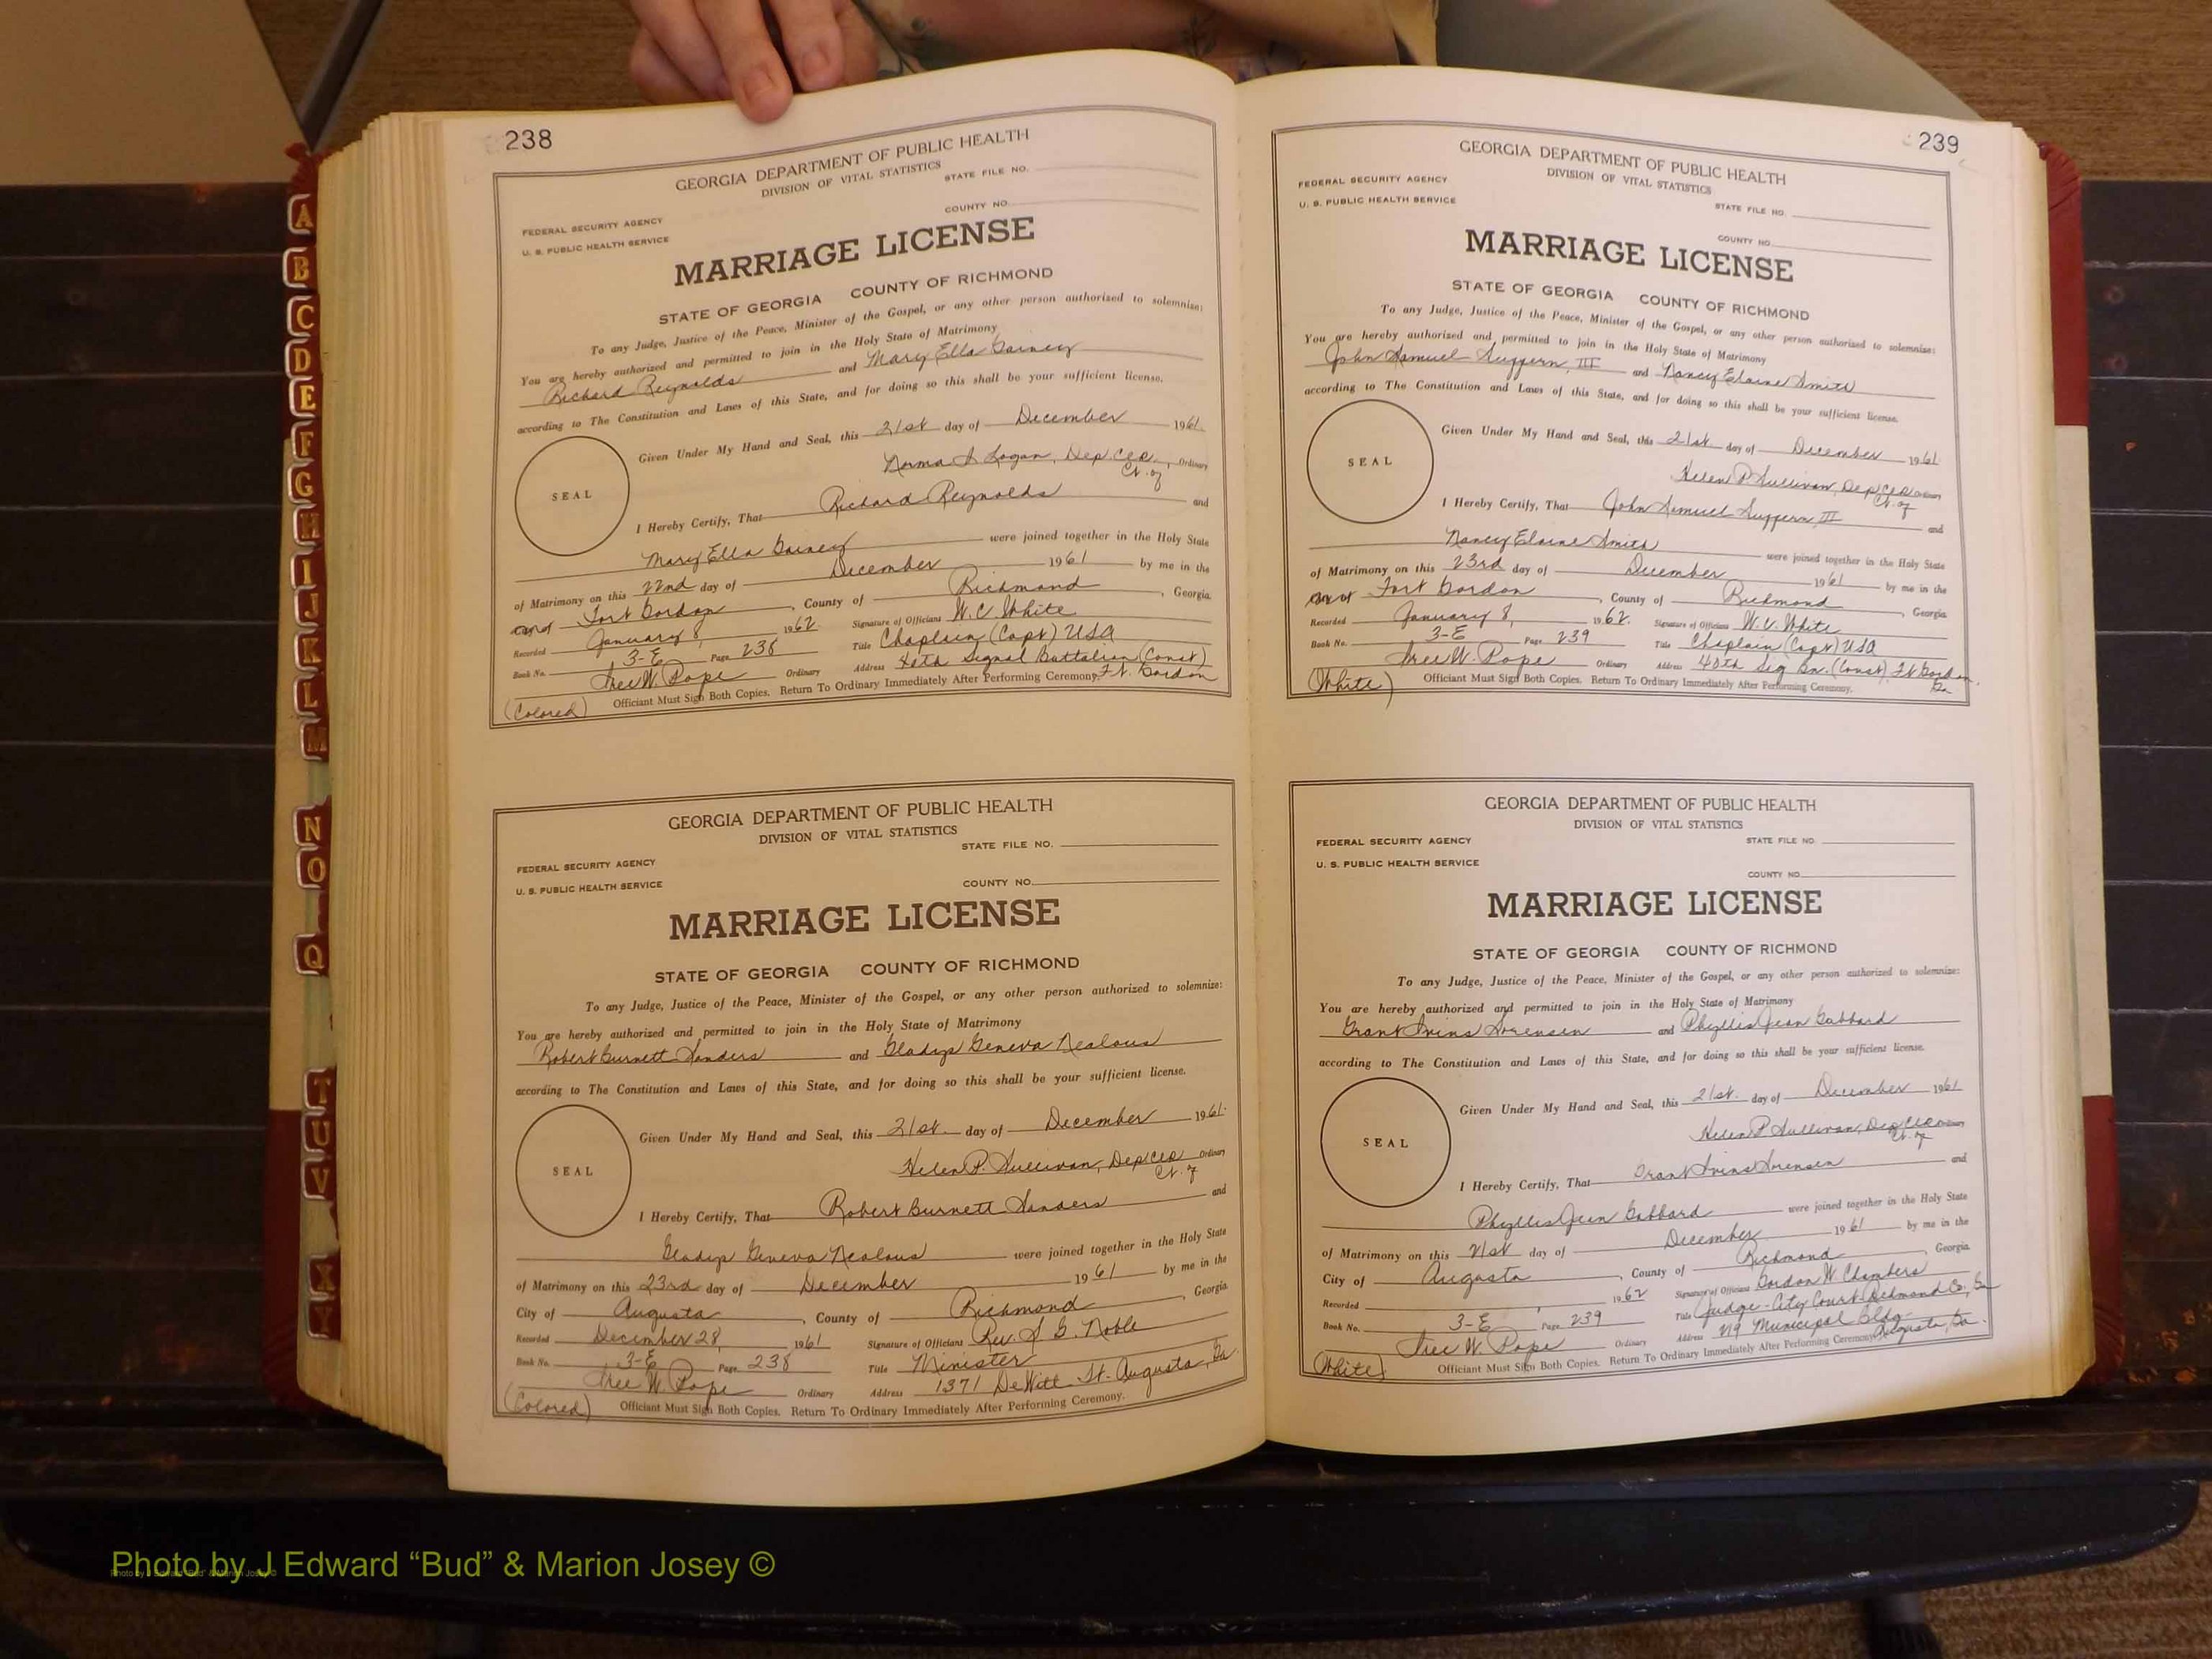 238
GEORGIA DEPARTMENT OF PUBLIC HEALTH
DIVISION OF VITAL STATISTICS
STATE FILE NO.
FEDERAL SECURITY AGENCY
COUNTY NO.
U. S. PUBLIC HEALTH SERVICE
MARRIAGE LICENSE
STATE OF GEORGIA COUNTY OF RICHMOND
To any Judge, Justice of the Peace, Minister of the Gospel, or any other person authorized to solemnize:
You are hereby authorized and permitted to join in the Holy State of Matrimony
Richard Reynolds and Mary Ella
according to The Constitution and Laws of this State, and for doing so this shall be your sufficient license.
Given Under My Hand and Seal, this 21st day of December 1961
SEAL
Norma Logan, Dep. Clk., Ordinary
Ct. of
I Hereby Certify, That Richard Reynolds and
Mary Ella were joined together in the Holy State
of Matrimony on this 22nd day of December 1961 by me in the
Fort Gordon, County of Richmond, Georgia.
Recorded January 8, 1962 Signature of Officiant W. C. White
Book No. 3-E Page 238 Title Chaplain (Capt) USA
W. Pope Ordinary Address 40th Signal Battalion (Const)
Ft. Gordon
(Colored) Officiant Must Sign Both Copies. Return To Ordinary Immediately After Performing Ceremony.
GEORGIA DEPARTMENT OF PUBLIC HEALTH
DIVISION OF VITAL STATISTICS
STATE FILE NO.
FEDERAL SECURITY AGENCY
U. S. PUBLIC HEALTH SERVICE
COUNTY NO.
MARRIAGE LICENSE
STATE OF GEORGIA COUNTY OF RICHMOND
To any Judge, Justice of the Peace, Minister of the Gospel, or any other person authorized to solemnize:
You are hereby authorized and permitted to join in the Holy State of Matrimony
Robert Burnett Sanders and Gladys Geneva Nealous
according to The Constitution and Laws of this State, and for doing so this shall be your sufficient license.
Given Under My Hand and Seal, this 21st day of December 1961
SEAL
Helen P. Sullivan, Dep Clk Ordinary
Ct. of
I Hereby Certify, That Robert Burnett Sanders and
Gladys Geneva Nealous were joined together in the Holy State
of Matrimony on this 23rd day of December 1961 by me in the
City of Augusta, County of Richmond, Georgia.
Recorded December 28, 1961 Signature of Officiant Rev. S. G. Noble
Book No. 3-E Page 238 Title Minister
W. Pope Ordinary Address 1371 DeWitt St. Augusta, Ga.
(Colored) Officiant Must Sign Both Copies. Return To Ordinary Immediately After Performing Ceremony.
239
GEORGIA DEPARTMENT OF PUBLIC HEALTH
DIVISION OF VITAL STATISTICS
FEDERAL SECURITY AGENCY
U. S. PUBLIC HEALTH SERVICE
STATE FILE NO.
COUNTY NO.
MARRIAGE LICENSE
STATE OF GEORGIA COUNTY OF RICHMOND
To any Judge, Justice of the Peace, Minister of the Gospel, or any other person authorized to solemnize:
You are hereby authorized and permitted to join in the Holy State of Matrimony
John Samuel Suggern, III and Nancy Elaine Smith
according to The Constitution and Laws of this State, and for doing so this shall be your sufficient license.
Given Under My Hand and Seal, this 21st day of December 1961
SEAL
Helen P Sullivan, Dep Clk Ordinary
Ct. of
I Hereby Certify, That John Samuel Suggern III and
Nancy Elaine Smith were joined together in the Holy State
of Matrimony on this 23rd day of December 1961 by me in the
Fort Gordon, County of Richmond, Georgia
Recorded January 8, 1962. Signature of Officiant White
Book No. 3-E Page 239 Title Chaplain (Capt) USA
W. Pope Ordinary Address 40th Sig Bn. (Const) Ft Gordon,
Ga
(White) Officiant Must Sign Both Copies. Return To Ordinary Immediately After Performing Ceremony.
GEORGIA DEPARTMENT OF PUBLIC HEALTH
DIVISION OF VITAL STATISTICS
FEDERAL SECURITY AGENCY
STATE FILE NO.
U. S. PUBLIC HEALTH SERVICE
COUNTY NO.
MARRIAGE LICENSE
STATE OF GEORGIA COUNTY OF RICHMOND
To any Judge, Justice of the Peace, Minister of the Gospel, or any other person authorized to solemnize:
You are hereby authorized and permitted to join in the Holy State of Matrimony
Grant Ivins Sorensen and Phyllis Jean Gabbard
according to The Constitution and Laws of this State, and for doing so this shall be your sufficient license.
Given Under My Hand and Seal, this 21st. day of December 1961
SEAL
Helen P Sullivan, Dep Clk Ordinary
Ct. of
I Hereby Certify, That Grant Ivins Sorensen and
Phyllis Jean Gabbard were joined together in the Holy State
of Matrimony on this 21st day of December 1961 by me in the
City of Augusta, County of Richmond, Georgia
Recorded , 1962 Signature of Officiant Gordon W. Chambers
Book No. 3-E Page 239 Title Judge - City Court Richmond Co; Ga
W Pope Ordinary Address Municipal Bldg
Augusta, Ga.
(White) Officiant Must Sign Both Copies. Return To Ordinary Immediately After Performing Ceremony.
A
B
C
D
E
F
G
H
I
J
K
L
M
N
O
Q
T
U
V
X
Y
Photo by J Edward “Bud” & Marion Josey ©
Photo by J Edward “Bud” & Marion Josey ©